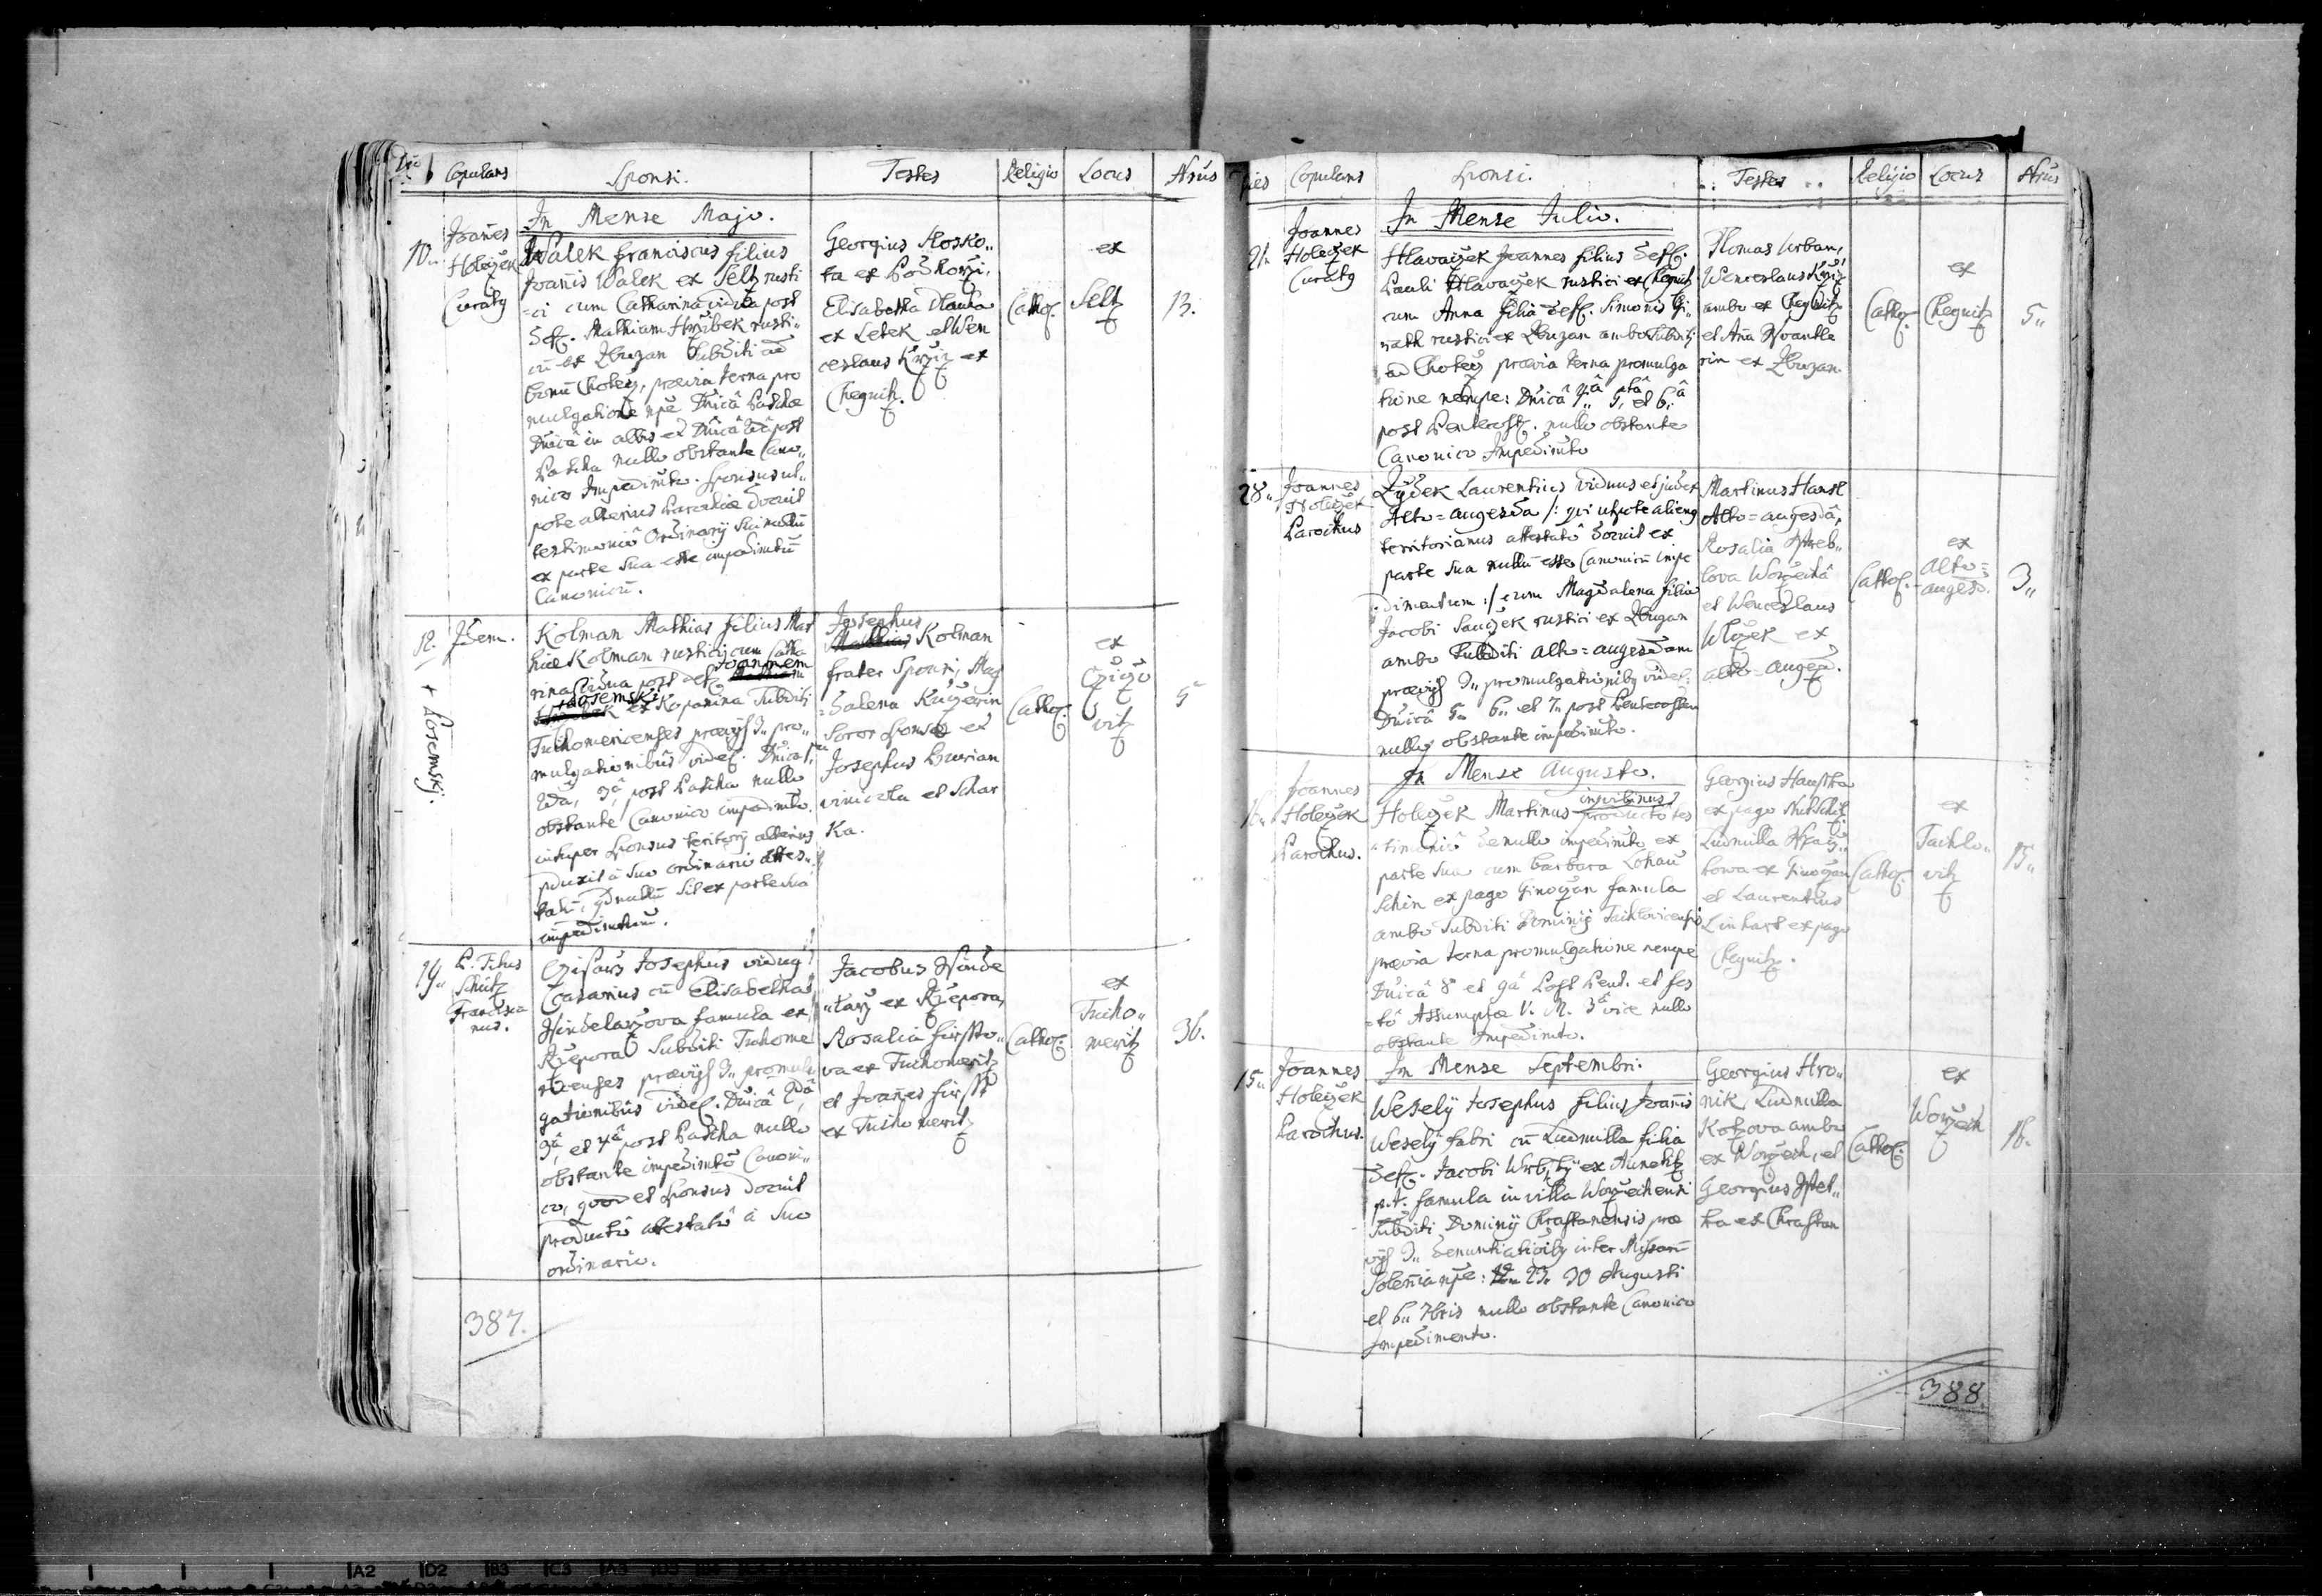 Dies Copulans Sponsi. Testes Religio Locus Nrus
In Mense Majo.
10. Joanes
Holeczek
Curatg
Walek franciscus filius
Joanis Walek ex Seltz rusti
=ci cum Catharina vidua post
Def. Mathiam Hrzibek rusti„
cu ex Zbuzan Subditi ad
bonu Chotecz, praevia terna pro
mulgatione npe Dnicâ Paschae
Dnicâ in albis et Dnicâ 2dâ post
Pascha nullo obstante Cano„
nico Impedimto. Sponsus ut„
pote alterius Parochiae docuit
testimonio Ordinarij Sui nullu
ex parte sua esse impedimtu
Canonicu.
Georgius Kosko„
ta ex Podhorzi,
Elisabetha
ex Letek et Wen
ceslaus Krziz ex
Chegnitz.
Cathol.
ex
Seltz
13.
12. Idem.
+ Kosemskj.
Kolman Mathias filius Mat
hiae Kolman rustici cum Catha
rina vidua post def. Joannem
Kosemski ex Kopanina Subditi
Tuchomericenses praevijs 3„ pro„
mulgationibus videl. Dnica 1ma
2da, 3â post Pascha nullo
obstante Canonico impedimto.
insuper Sponsus teritorij alterius
pduxit â suo ordinario attes„
tatu, qd nullu sit ex parte sua
impedimtum.
Josephus
Mathias Kolman
frater Sponsi, Mag
=dalena Krizerin
Soror Sponsae et
Josephus Burian
vinicola et Schar
Ka.
Cathol.
ex
Czizo
vitz
5
19. P. Titus
Schütz
Francisca
nus.
Czisars Josephus vidug
Casarius cu Elisabetha
Hindelarzova famula ex
Rzepora Subditi Tuchome
ricenses praevijs 3„ promul
gationibus videl. Dnicâ 2dâ,
3â, et 4â post Pascha nullo
obstante impedimto Canoni„
co, quod et Sponsus docuit
producto atestato â suo
ordinario.
Jacobus Hinde
„larz ex Rzepora,
Rosalia fürstto„
va ex Tuchomeritz
et Joanes fürstt
ex Tucho meritz
Cathol.
ex
Tucho„
meritz
36.
387.
Dies Copulans Sponsi. Testes Religio Locus Nrus
In Mense Julio.
21. Joannes
Holeczek
Curatg
Hlavaczek Joannes filius Def.
Pauli Hlavaczek rustici ex Chegnitz
cum Anna filia def. Simonis Gi„
rath rustici ex Zbuzan ambo Subditi
ad Chotecz praevia terna promulga
tione nempe: Dnicâ 4â 5ta et 6â
post Pentecost. nullo obstante
Canonico Impedimto
Thomas Urban,
Wenceslaus Krziz
ambo ex Chegnitz
et Ana
rin ex Zbuzan.
Cathol.
ex
Chegnitz
5„
28„ Joannes
Holeczek
Parochus
Zydek Laurentius viduus et judex
Alto=augezda /: qui utpote alieng
territorianus attestato docuit ex
parte sua nullu esse Canonicu impe
dimentum :/ cum Magdalena filia
Jacobi Sauczek rustici ex Zbuzan
ambo Subditi alto=augezdam
praevijs 3„ promulgationibg videl.
Dnicâ 5„ 6„ et 7„ post Pentecosten
nullo obstante impedimto.
Martinus Hansl
Alto=augezda,
Rosalia
lova Worzechâ
et Wenceslaus
Wlczek ex
alto=augezd.
Cathol.
ex
Alto=
augezd.
3„
In Mense Augusto.
16„ Joannes
Holeczek
Parochus.
Holeczek Martinus inquilinus producto tes
„timonio de nullo impedimto ex
parte sua cum Barbara Lohau
Schin ex pago Ginoczan famula
ambo Subditi Dominij Tachlovicensis
praevia terna promulgatione nempe
Dnicâ 8 et 9â Post Pent. et fes
=to Assumptae V. M. 3â vice nullo
obstante Impedimto.
Georgius Hauftho
ex pago
Ludmilla
towa ex Ginoczan
et Laurentius
Linhart ex pago
Chegnitz.
Cathol.
ex
Tachlo„
vitz
15„
In Mense Septembri.
15„ Joannes
Holeczek
Parochus.
Weselÿ Josephus filius Joanis
Weselÿ fabri cu Ludmilla filia
def. Jacobi ex
p.t. famula in villa Worzechensi
Subditi Dominij Chrastanensis prae
vijs 3„ denuntiatioibg inter Missaru
Solemia npe: 23„ 30 Augusti
et 6„ 7bris nullo obstante Canonico
Impedimento.
Georgius Hro„
nik, Ludmilla
Kotzova ambo
ex Worzech, et
Georgius
ka ex Chrastan
Cathol.
ex
Worzech
16.
388.